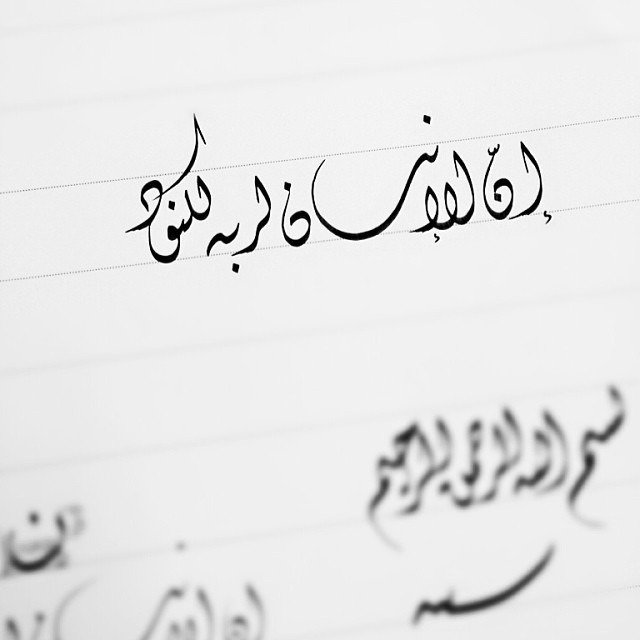 إنّ الإنسان لربه لكنود
بسم الله الرحمن الرحيم